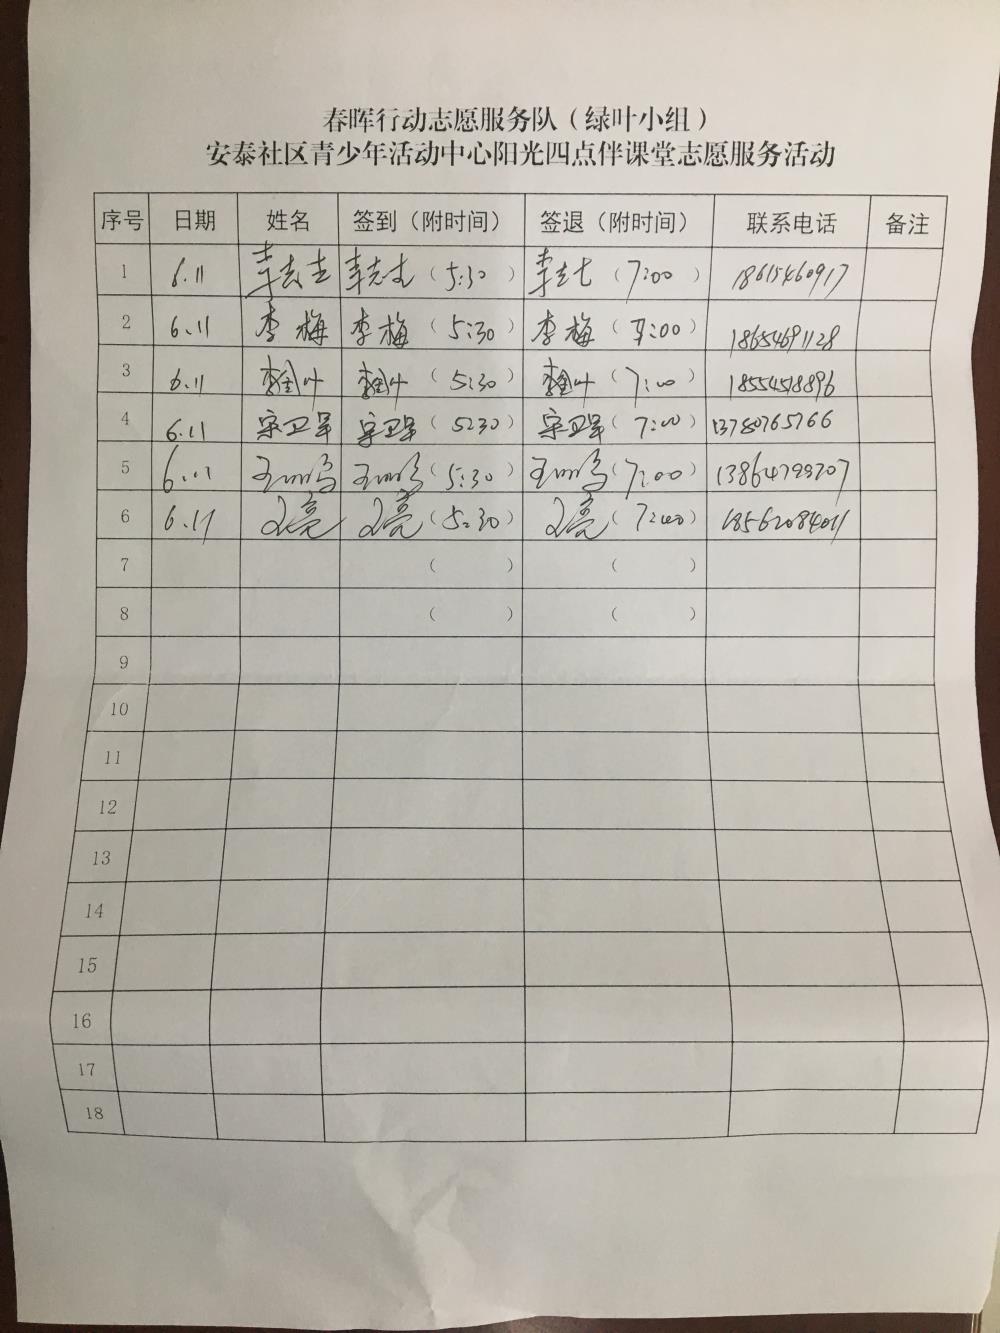 春晖行动志愿服务队（绿叶小组）
安泰社区青少年活动中心阳光四点伴课堂志愿服务活动
序号 日期 姓名 签到（附时间） 签退（附时间） 联系电话 备注
1 6.11 （5:30） （7:00） 18615460917
2 6.11 李梅 李梅（5:30） 李梅（7:00） 18654691128
3 6.11 （5:30） （7:00） 18554518896
4 6.11 宋卫军 宋卫军（5:30） 宋卫军（7:00） 13780765766
5 6.11 （5:30） （7:00）
6 6.11 （5:30） （7:00） 18562084011
7 （ ） （ ）
8 （ ） （ ）
9
10
11
12
13
14
15
16
17
18